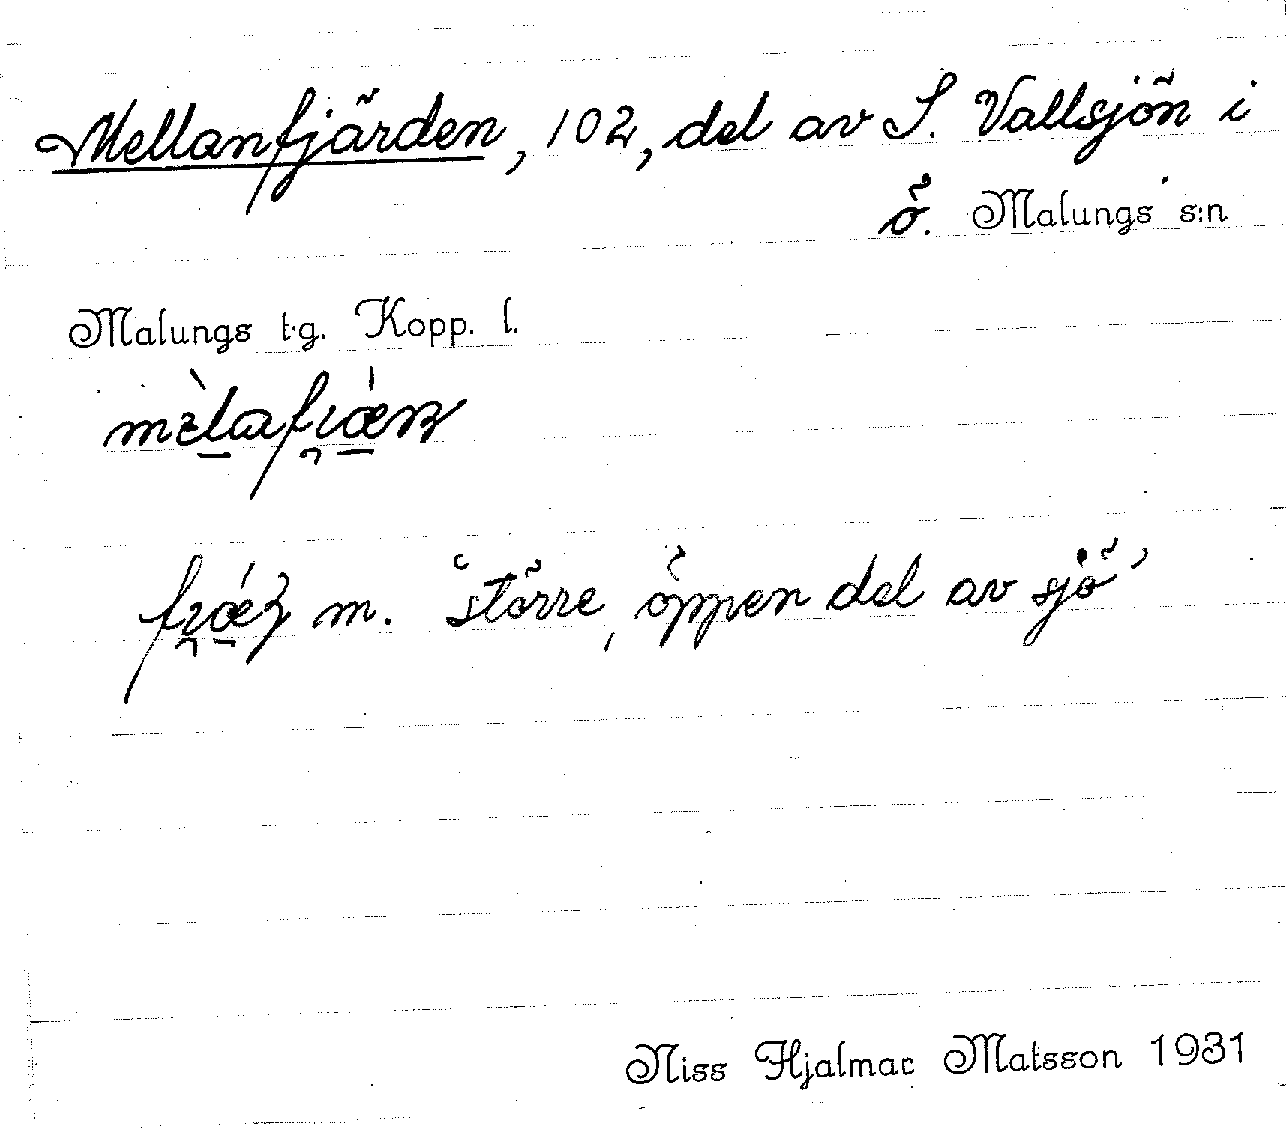 Mellanfjärden, 102, del av S. Vallsjön i
ö. Malungs s:n
Malungs t.g. Kopp. l.
m. 'större, öppen del av sjö'
Niss Hjalmar Matsson 1931